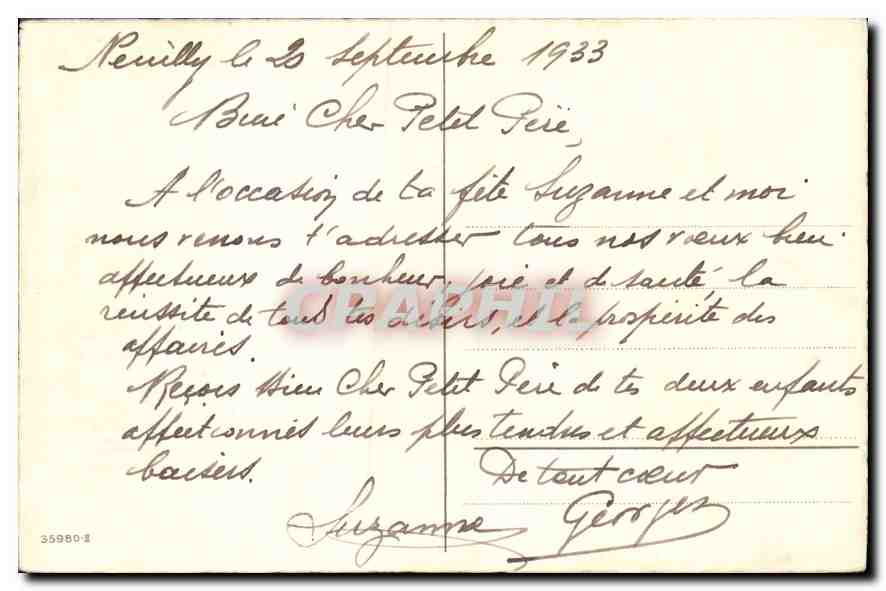 Neuilly le 20 Septembre 1933
Bien Cher Petit Père,
A l'occasion de ta fête Suzanne et moi
nous venons t'adresser tous nos vœux bien
affectueux de bonheur, joie et de santé, la
réussite de tous tes désirs, et la prospérité des
affaires.
Reçois Bien Cher Petit Père de tes deux enfants
affectionnés leurs plus tendres et affectueux
baisers.
De tout cœur
Suzanne Georges
35980-II
CPAPHIL